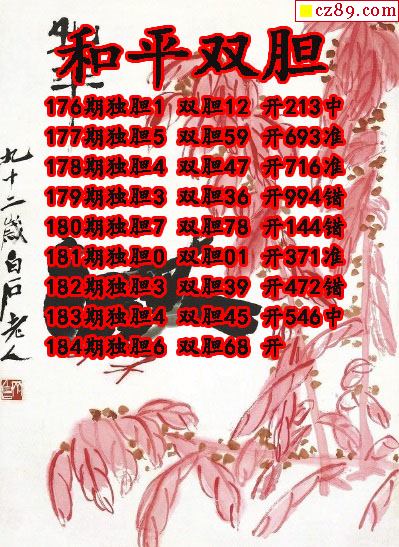 cz89.com
和平双胆
176期独胆1 双胆12 开213中
177期独胆5 双胆59 开693准
178期独胆4 双胆47 开716准
179期独胆3 双胆36 开994错
180期独胆7 双胆78 开144错
181期独胆0 双胆01 开371准
182期独胆3 双胆39 开472错
183期独胆4 双胆45 开546中
184期独胆6 双胆68 开
九十二岁白石老人